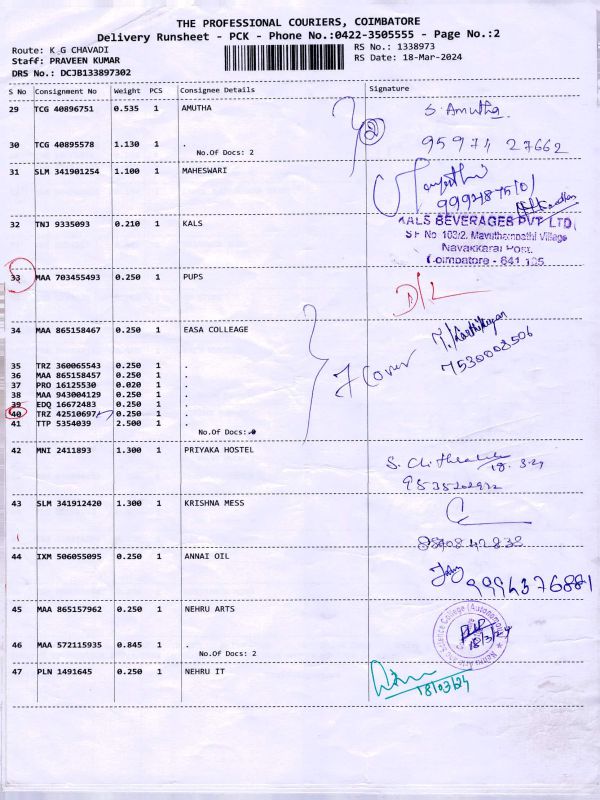 THE PROFESSIONAL COURIERS, COIMBATORE
Delivery Runsheet - PCK - Phone No.:0422-3505555 - Page No.:2
Route: K G CHAVADI
Staff: PRAVEEN KUMAR
DRS No.: DCJB133897302
RS No.: 1338973
RS Date: 18-Mar-2024
S No Consignment No Weight PCS Consignee Details Signature
29 TCG 40896751 0.535 1 AMUTHA S. Amutha.
30 TCG 40895578 1.130 1 . 95974 27662
No.Of Docs: 2
31 SLM 341901254 1.100 1 MAHESWARI
32 TNJ 9335093 0.210 1 KALS
KALS BEVERAGES PVT LTD,
S F No 103/2, Mavuthampathi Village
Navakkarai Post,
Coimbatore - 641 105
33 MAA 703455493 0.250 1 PUPS D/L
34 MAA 865158467 0.250 1 EASA COLLEAGE
7 Cover
7530008506
35 TRZ 360065543 0.250 1 .
36 MAA 865158457 0.250 1 .
37 PRO 16125530 0.020 1 .
38 MAA 943004129 0.250 1 .
39 EDQ 16672483 0.250 1 .
40 TRZ 42510697 0.250 1 .
41 TTP 5354039 2.500 1 .
No.Of Docs:
42 MNI 2411893 1.300 1 PRIYAKA HOSTEL
18.3.24
43 SLM 341912420 1.300 1 KRISHNA MESS
44 IXM 506055095 0.250 1 ANNAI OIL
9994376881
45 MAA 865157962 0.250 1 NEHRU ARTS
18/3/24
46 MAA 572115935 0.845 1 .
No.Of Docs: 2
47 PLN 1491645 0.250 1 NEHRU IT
18/03/24